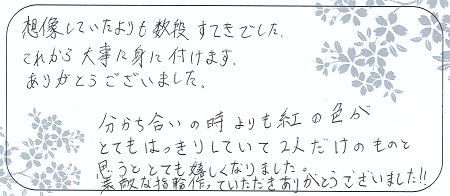 想像していたよりも数段 すてきでした.
これから大事に身に付けます.
ありがとうございました。
分かち合いの時よりも紅の色が
とてもはっきりしていて2人だけのものと
思うととても嬉しくなりました。
素敵な指輪作っていただきありがとうございました!!